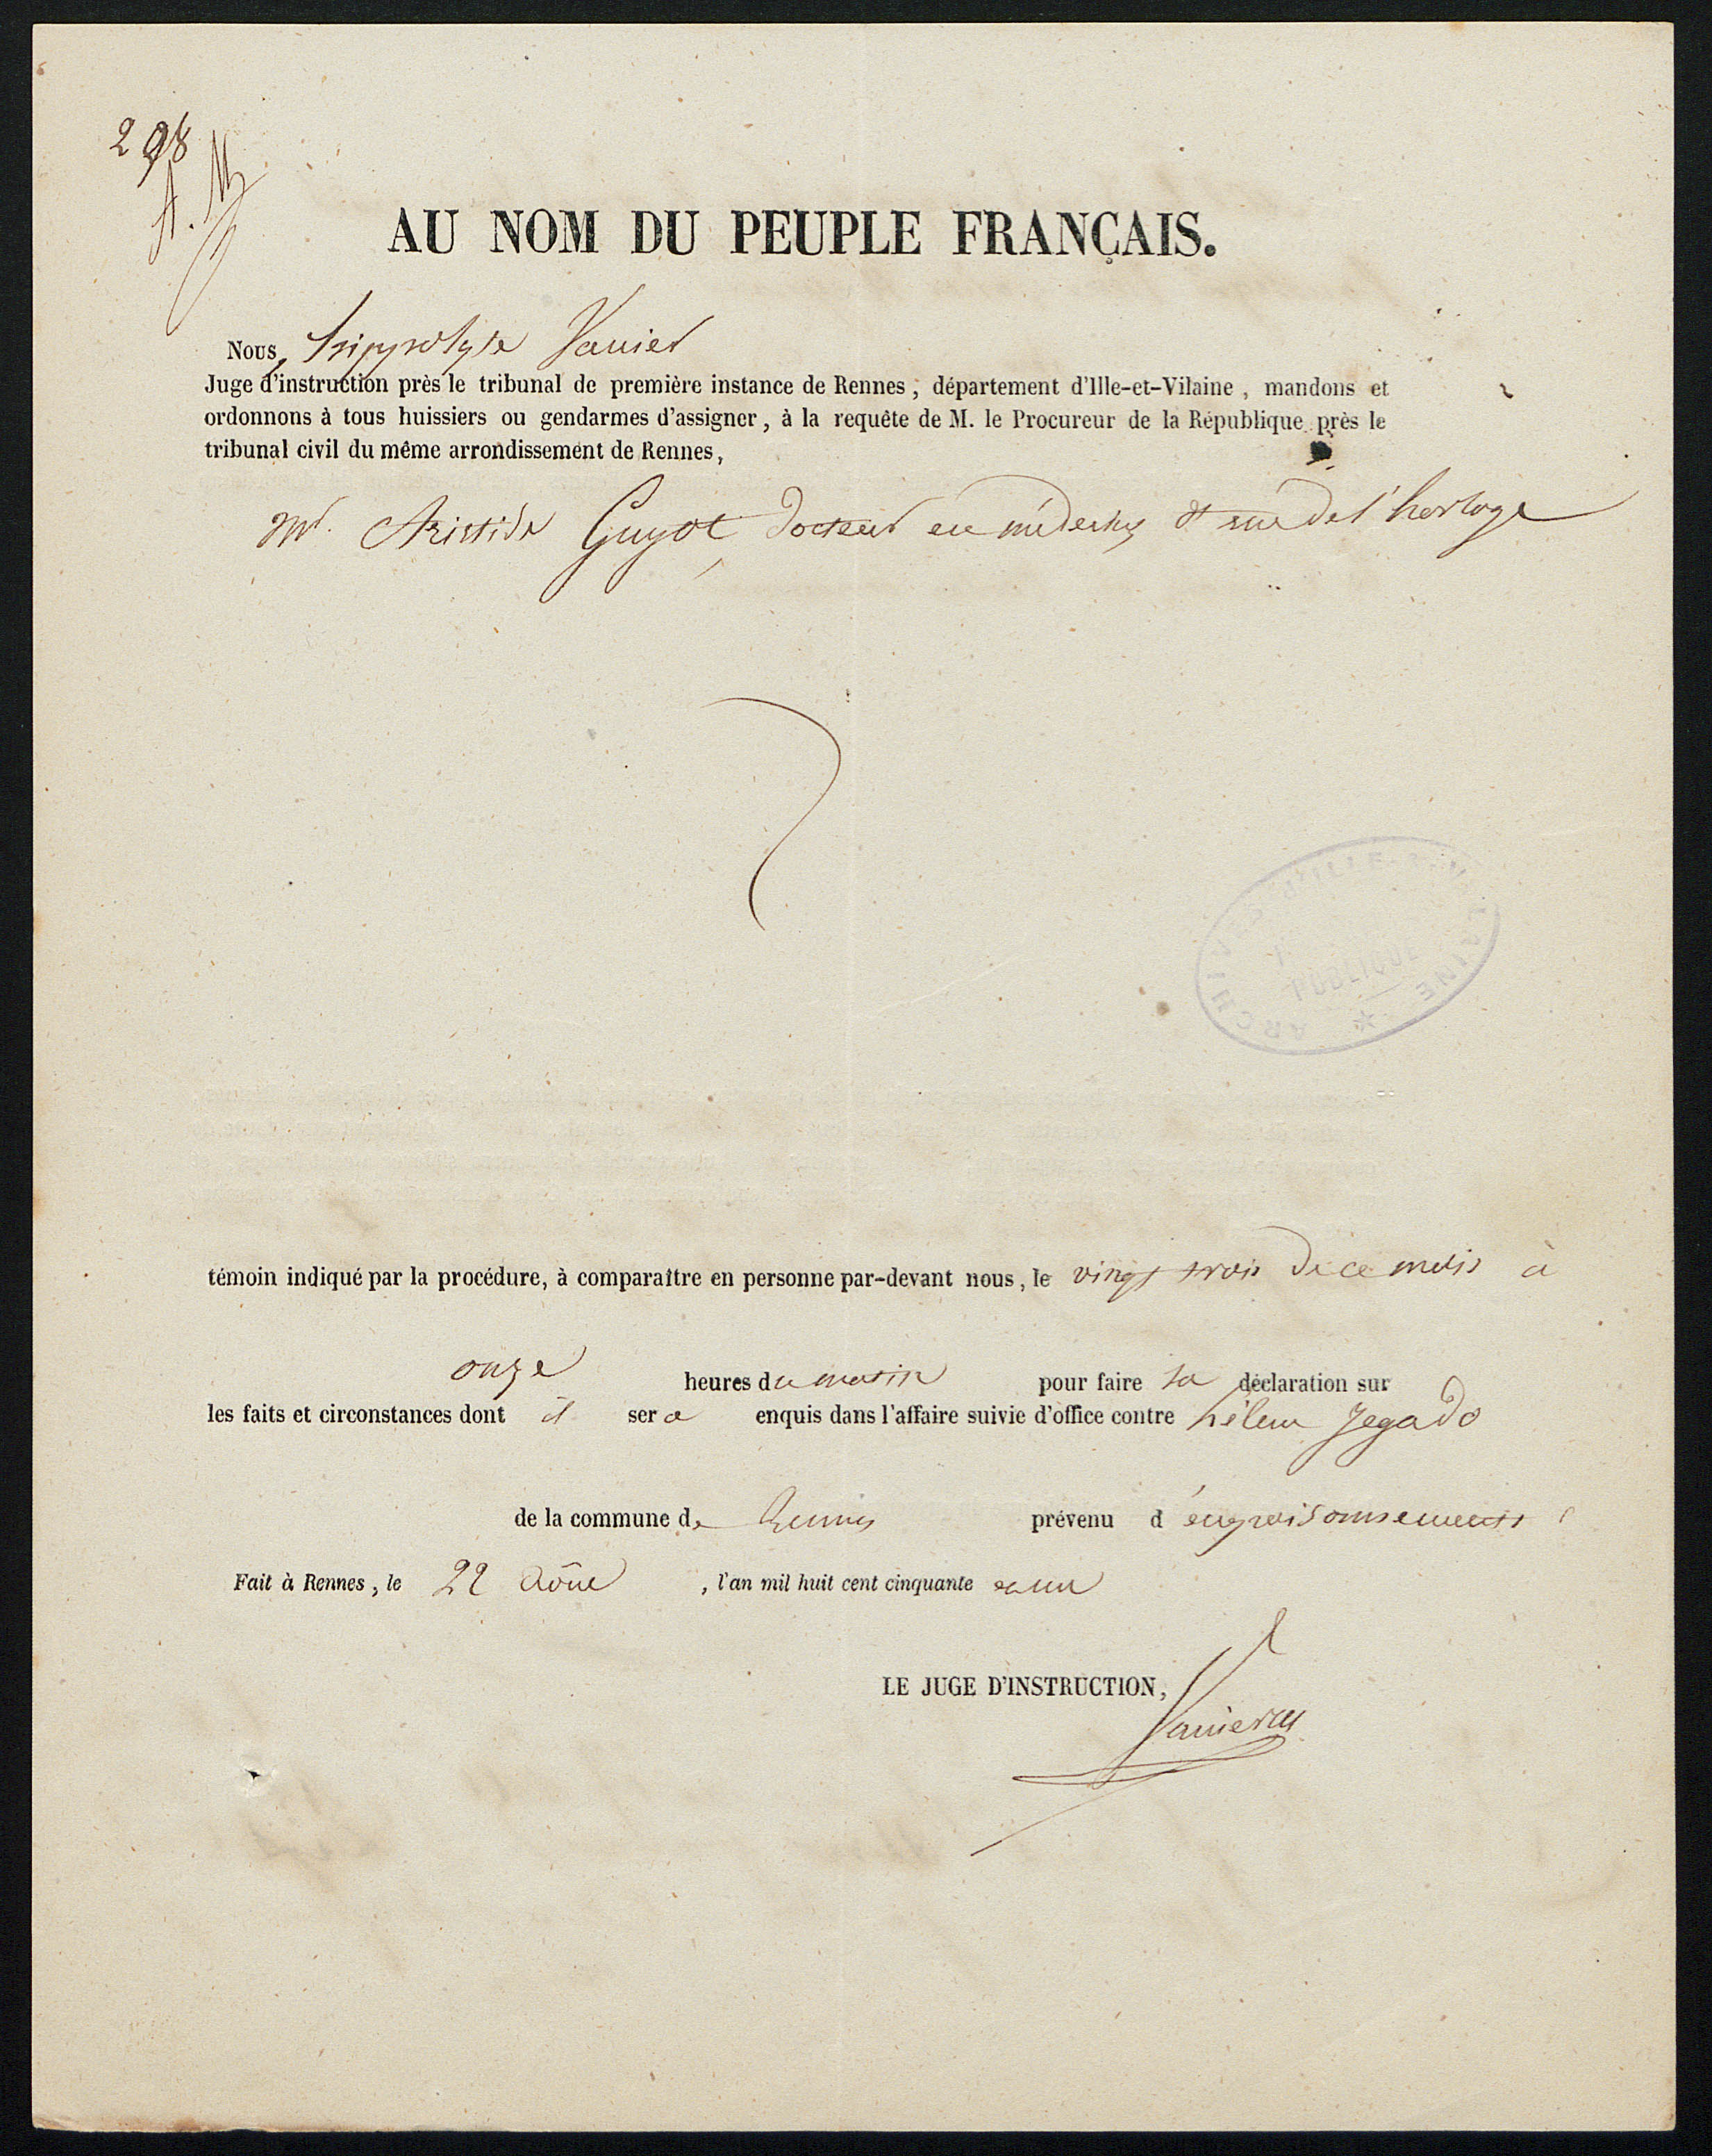 298
A. M
AU NOM DU PEUPLE FRANÇAIS.
Nous, hippolyte Vanier
Juge d'instruction près le tribunal de première instance de Rennes, département d'Ille-et-Vilaine, mandons et
ordonnons à tous huissiers ou gendarmes d'assigner, à la requête de M. le Procureur de la République près le
tribunal civil du même arrondissement de Rennes,
Mr. Aristide Guyot, docteur en médecine rue de l'horloge
ARCHIVES D'ILLE-&-VILAINE *
PUBLIQUE
témoin indiqué par la procédure, à comparaître en personne par-devant nous, le vingt trois de ce mois à
onze heures du matin pour faire sa déclaration sur
les faits et circonstances dont il sera enquis dans l'affaire suivie d'office contre hélène Jegado
de la commune de Rennes prévenu d'empoisonnements
Fait à Rennes, le 22 Août, l'an mil huit cent cinquante et un
LE JUGE D'INSTRUCTION,
Vanier